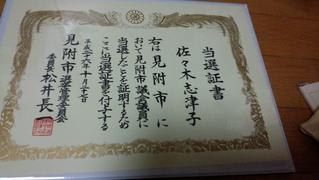 当選証書
佐々木志津子
右は見附市に
おいて見附市議会議員に
当選したことを証明するため
ここに当選証書を付与する
平成二十六年十月二十七日
見附市選挙管理委員会
委員長 松井長